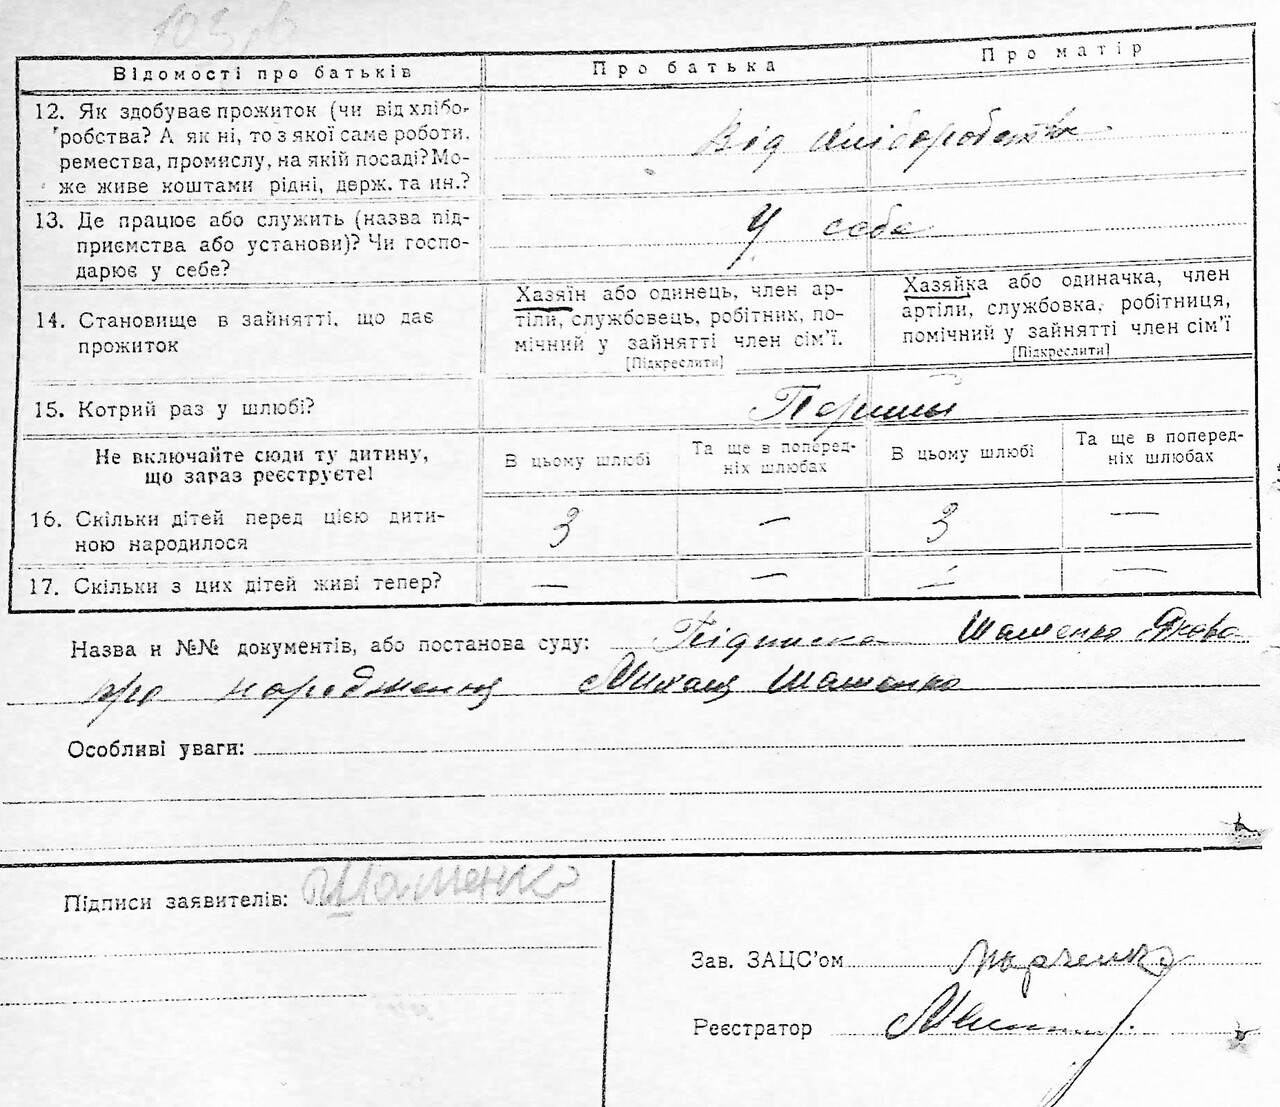 Відомості про батьків
Про батька
Про матір
12. Як здобуває прожиток (чи від хлібо-
робства? А як ні, то з якої саме роботи,
ремества, промислу, на якій посаді? Мо-
же живе коштами рідні, держ. та ин.?
Від хліборобства
13. Де працює або служить (назва під-
приємства або установи)? Чи госпо-
дарює у себе?
У себе
14. Становище в зайнятті, що дає
прожиток
Хазяїн або одинець, член ар-
тіли, службовець, робітник, по-
мічний у зайнятті член сім'ї.
[Підкреслити]
Хазяйка або одиначка, член
артіли, службовка, робітниця,
помічний у зайнятті член сім'ї
[Підкреслити]
15. Котрий раз у шлюбі?
Перший
Не включайте сюди ту дитину,
що зараз реєструєте!
В цьому шлюбі
Та ще в поперед-
ніх шлюбах
В цьому шлюбі
Та ще в поперед-
ніх шлюбах
16. Скільки дітей перед цією дити-
ною народилося
3 — 3 —
17. Скільки з цих дітей живі тепер?
— — — —
Назва и №№ документів, або постанова суду: Підписка Шашенко Якова
про народження Михаця Шашенко
Особливі уваги:
Підписи заявителів: Шашенко
Зав. ЗАЦС'ом Марченко
Реєстратор